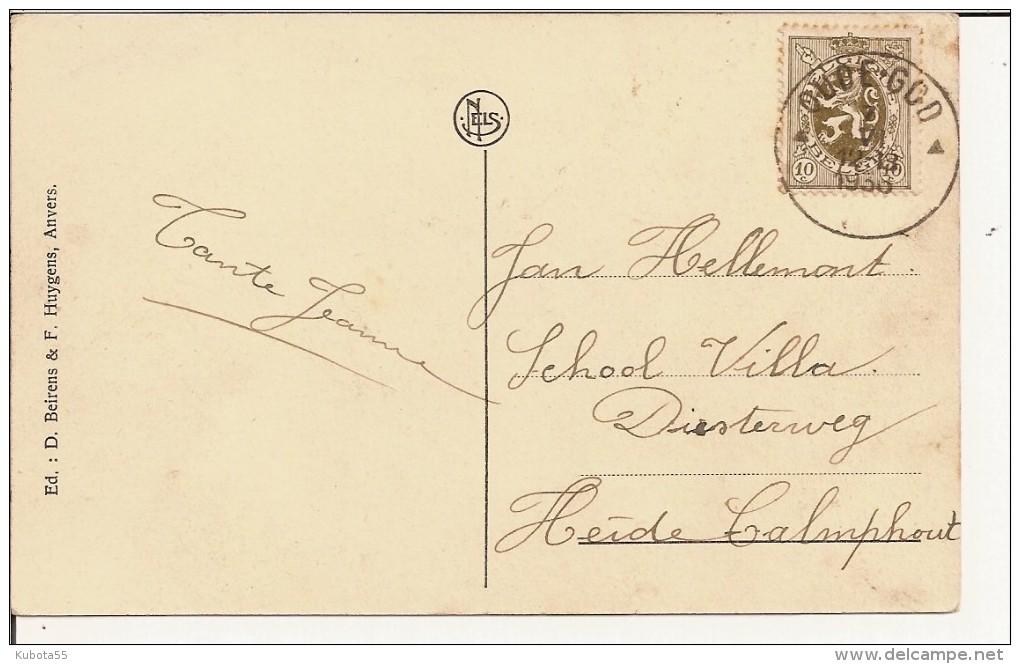 Ed. : D. Beirens & F. Huygens, Anvers.
NELS
Tante Jeanne
BELGIE
BELGIQUE
10 c
10 c
OUDE-GOD
VI
Jan Hellemont.
School Villa.
Diesterweg
Heide Calmphout
Kubota55
delcampe.net